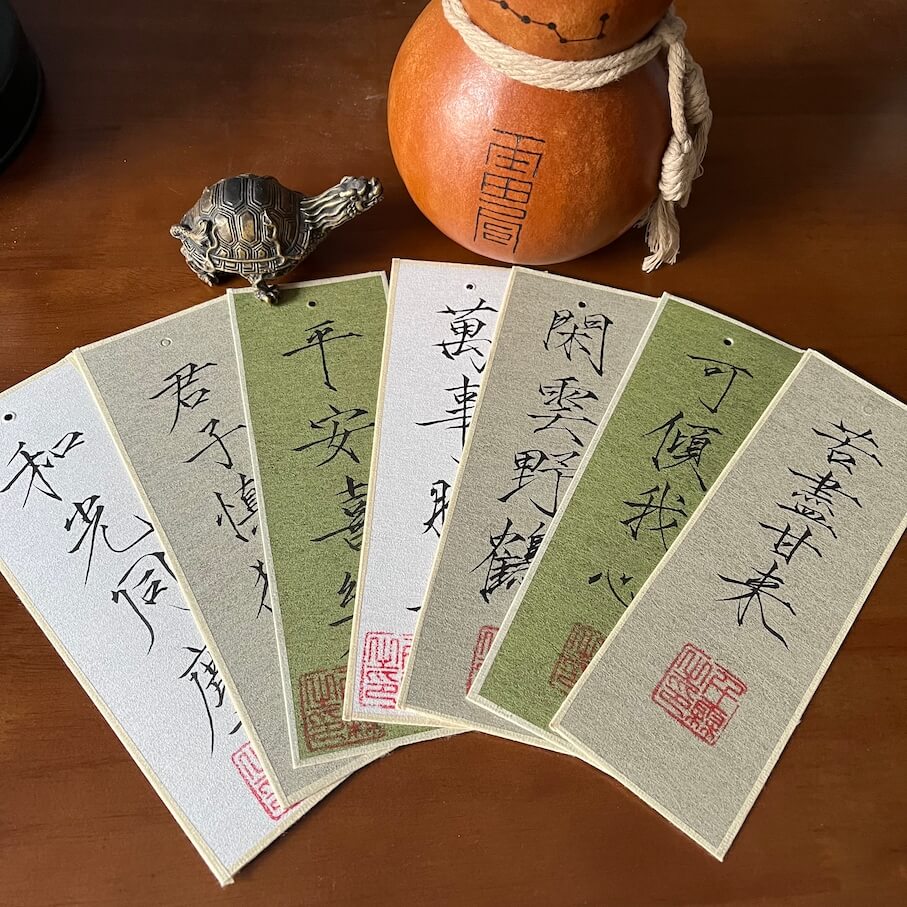 和光同塵
君子慎
平安喜
萬事
閑雲野鶴
可傾我心
苦盡甘来